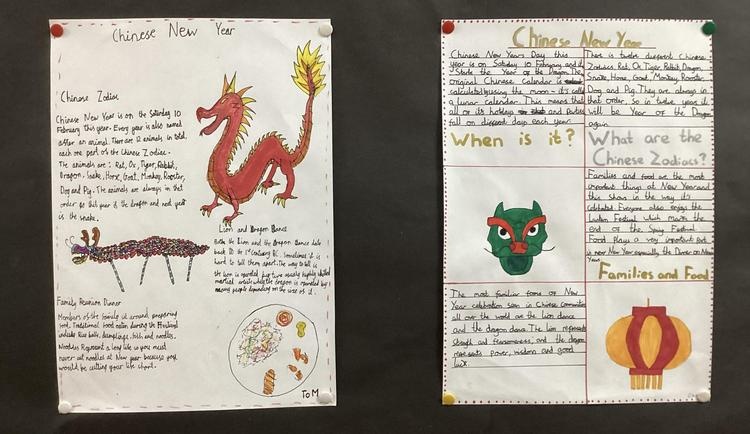 Chinese New Year
Chinese Zodiac
Chinese New Year is on the Saturday 10
February this year. Every year is also named
after an animal. There are 12 animals in total,
each one part of the Chinese Zodiac.
The animals are: Rat, Ox, Tiger, Rabbit,
Dragon, Snake, Horse, Goat, Monkey, Rooster,
Dog and Pig. The animals are always in that
order so this year is the dragon and next year
is the snake.
Lion and Dragon Dance
Both the Lion and the Dragon Dance date
back to the 1st Century BC. Sometimes it is
hard to tell them apart. The way to tell is
the lion is operated by two usually highly skilled
martial artists while the dragon is operated by
many people depending on the size of it.
Family Reunion Dinner
Members of the family sit around preparing
food. Traditional food eaten during the festival
include Rice balls, dumplings, fish and noodles.
Noodles Represent a long life so you must
never cut noodles at New year because you
would be cutting your life short.
Tom
Chinese New Year
Chinese New Years Day this
year is on Saturday 10 February and it
Starts the Year of the Dragon. The
original Chinese Calendar is
calculated using the moon - it's called
a lunar calendar. This means that
all of its holidays and parties
fall on different days each year.
When is it?
There is twelve different Chinese
Zodiacs Rat, Ox, Tiger, Rabbit, Dragon,
Snake, Horse, Goat, Monkey, Rooster,
Dog and Pig. They are always in
that order. So in twelve years it
will be Year of the Dragon
again.
What are the
Chinese Zodiacs?
Families and food are the most
important things at New Year and
this shows in the way it's
celebrated. Everyone also enjoys the
Lantern Festival which marks the
end of the Spring Festival.
Food plays a very important part
in new New Year especially the Dinner on New
Years
Families and Food
The most familiar forms of New
Year celebration seen in Chinese Communities
all over the world are the lion dance
and the dragon dance. The lion represents
strength and fearsomeness, and the dragon
represents power, wisdom and good
luck.